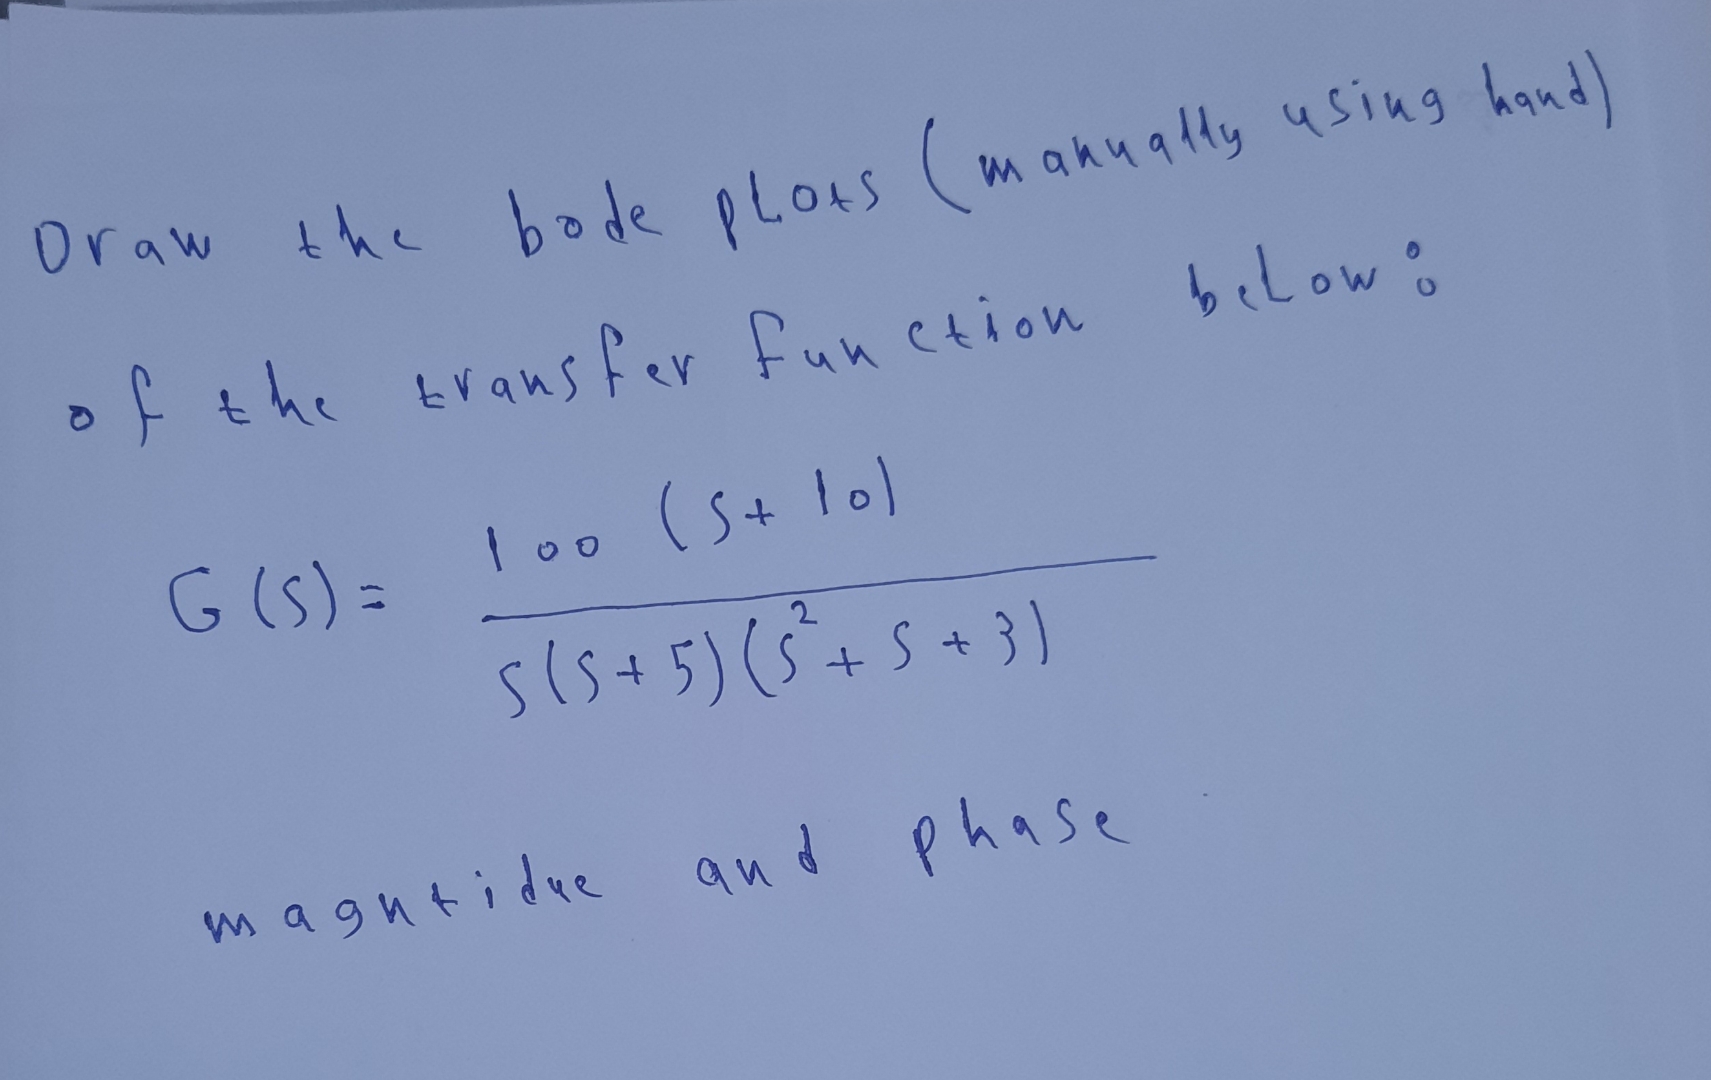 Draw the bode plots (manually using hand)
of the transfer function below:
G(s) = 100 (s + 10) / s(s + 5)(s² + s + 3)
magntidue and phase